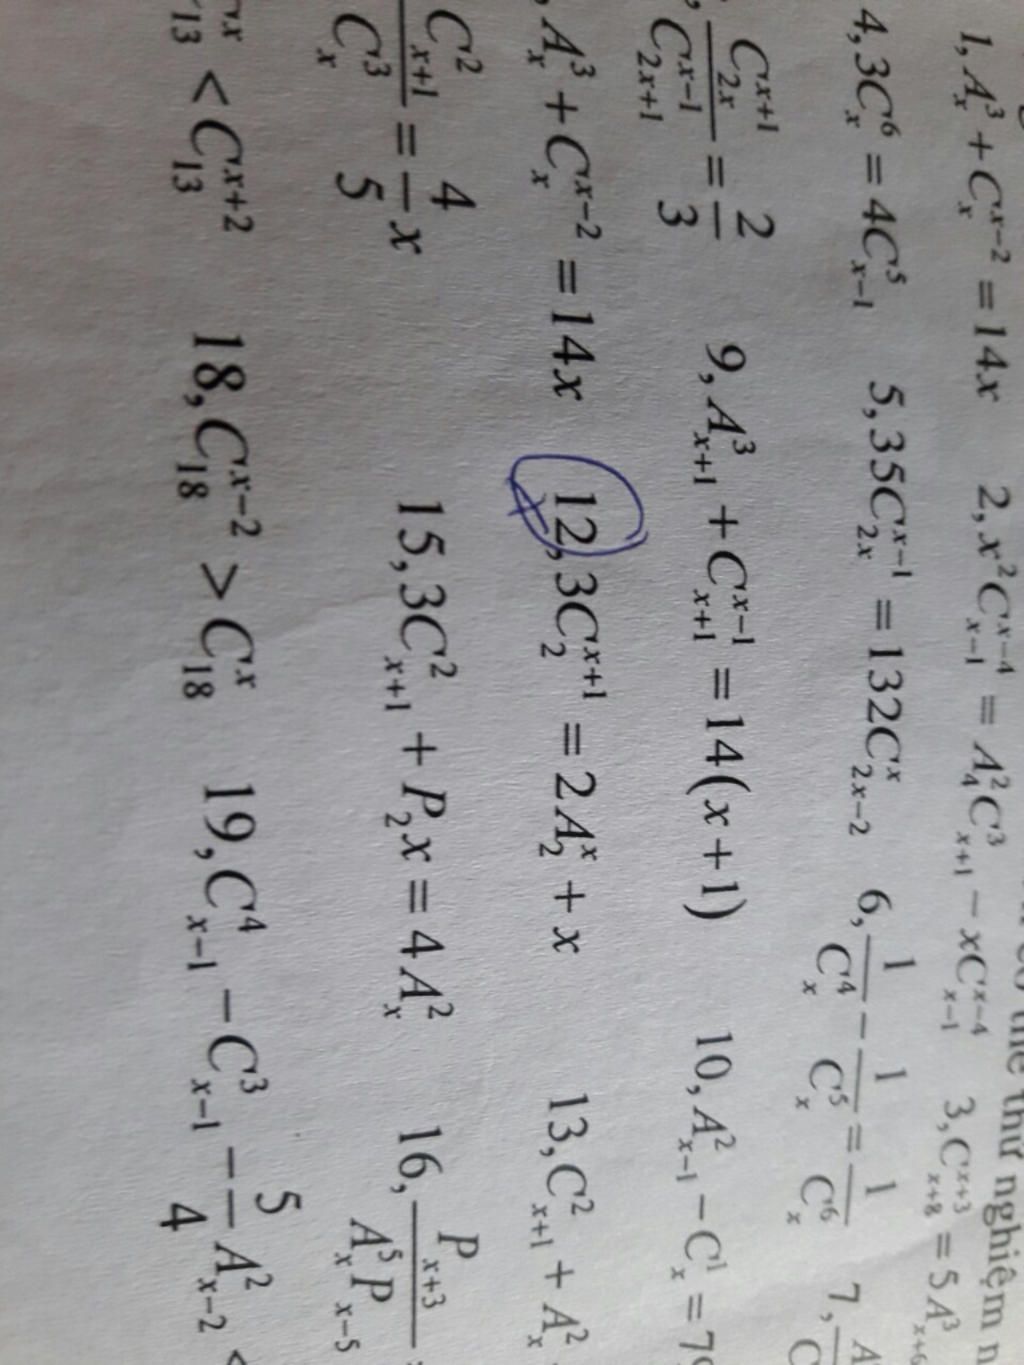 thể thử nghiệm n
1, A_x^3 + C_x^{x-2} = 14x 2, x^2 C_{x-1}^{x-4} = A_4^2 C_{x+1}^3 - xC_{x-1}^{x-4} 3, C_{x+8}^{x+3} = 5A_{x+6}^3
4, 3C_x^6 = 4C_{x-1}^5 5, 35C_{2x}^{x-1} = 132C_{2x-2}^x 6, \frac{1}{C_x^4} - \frac{1}{C_x^5} = \frac{1}{C_x^6} 7,
\frac{C_{2x}^{x+1}}{C_{2x+1}^{x-1}} = \frac{2}{3} 9, A_{x+1}^3 + C_{x+1}^{x-1} = 14(x+1) 10, A_{x-1}^2 - C_x^1 = 79
, A_x^3 + C_x^{x-2} = 14x 12, 3C_2^{x+1} = 2A_2^x + x 13, C_{x+1}^2 + A_x^2
\frac{C_{x+1}^2}{C_x^3} = \frac{4}{5}x 15, 3C_{x+1}^2 + P_2x = 4A_x^2 16, \frac{P_{x+3}}{A_x^5 P_{x-5}}
C_{13}^x < C_{13}^{x+2} 18, C_{18}^{x-2} > C_{18}^x 19, C_{x-1}^4 - C_{x-1}^3 - \frac{5}{4}A_{x-2}^2 <